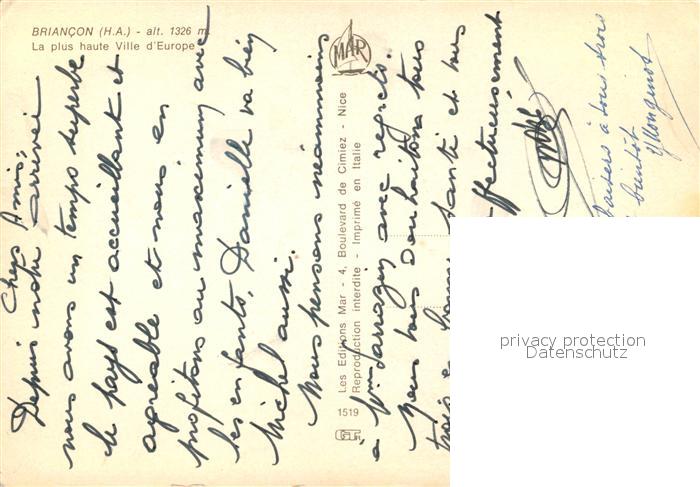 BRIANÇON (H.A.) - alt. 1326 m.
La plus haute Ville d'Europe
MAR
Chers Amis,
Depuis notre arrivée
nous avons un temps superbe
le pays est accueillant et
agréable et nous en
profitons au maximum avec
les enfants. Danielle va bien
Michel aussi.
Nous pensons néanmoins
à Mme Sarrazin avec regrets.
Nous vous souhaitons tous
trois bonne santé et tous
affectueusement
Baisers à tous trois
bientôt
Les Editions Mar - 4, Boulevard de Cimiez - Nice
Reproduction interdite - Imprimé en Italie
1519
privacy protection
Datenschutz